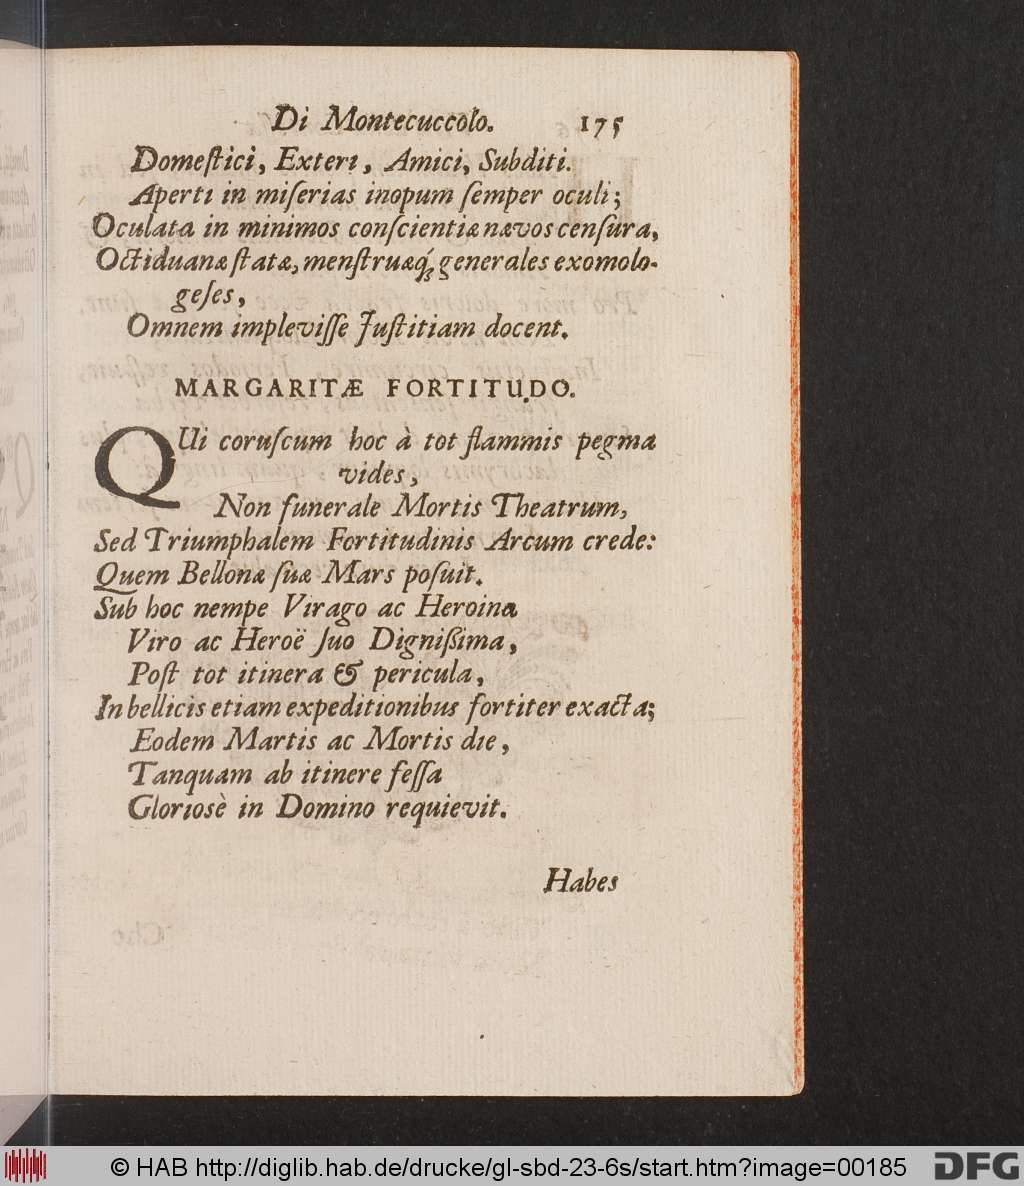 Di Montecuccolo. 175
Domeſtici, Exteri, Amici, Subditi.
Aperti in miſerias inopum ſemper oculi;
Oculata in minimos conſcientiæ nævos cenſura,
Octiduanæ ſtatæ, menſtruæq́; generales exomolo-
geſes,
Omnem impleviſſe Juſtitiam docent.
MARGARITÆ FORTITUDO.
QUi coruſcum hoc à tot flammis pegma
vides,
Non funerale Mortis Theatrum,
Sed Triumphalem Fortitudinis Arcum crede:
Quem Bellonæ ſuæ Mars poſuit.
Sub hoc nempe Virago ac Heroina
Viro ac Heroë ſuo Dignißima,
Poſt tot itinera & pericula,
In bellicis etiam expeditionibus fortiter exacta;
Eodem Martis ac Mortis die,
Tanquam ab itinere feſſa
Glorioſè in Domino requievit.
Habes
© HAB http://diglib.hab.de/drucke/gl-sbd-23-6s/start.htm?image=00185
DFG